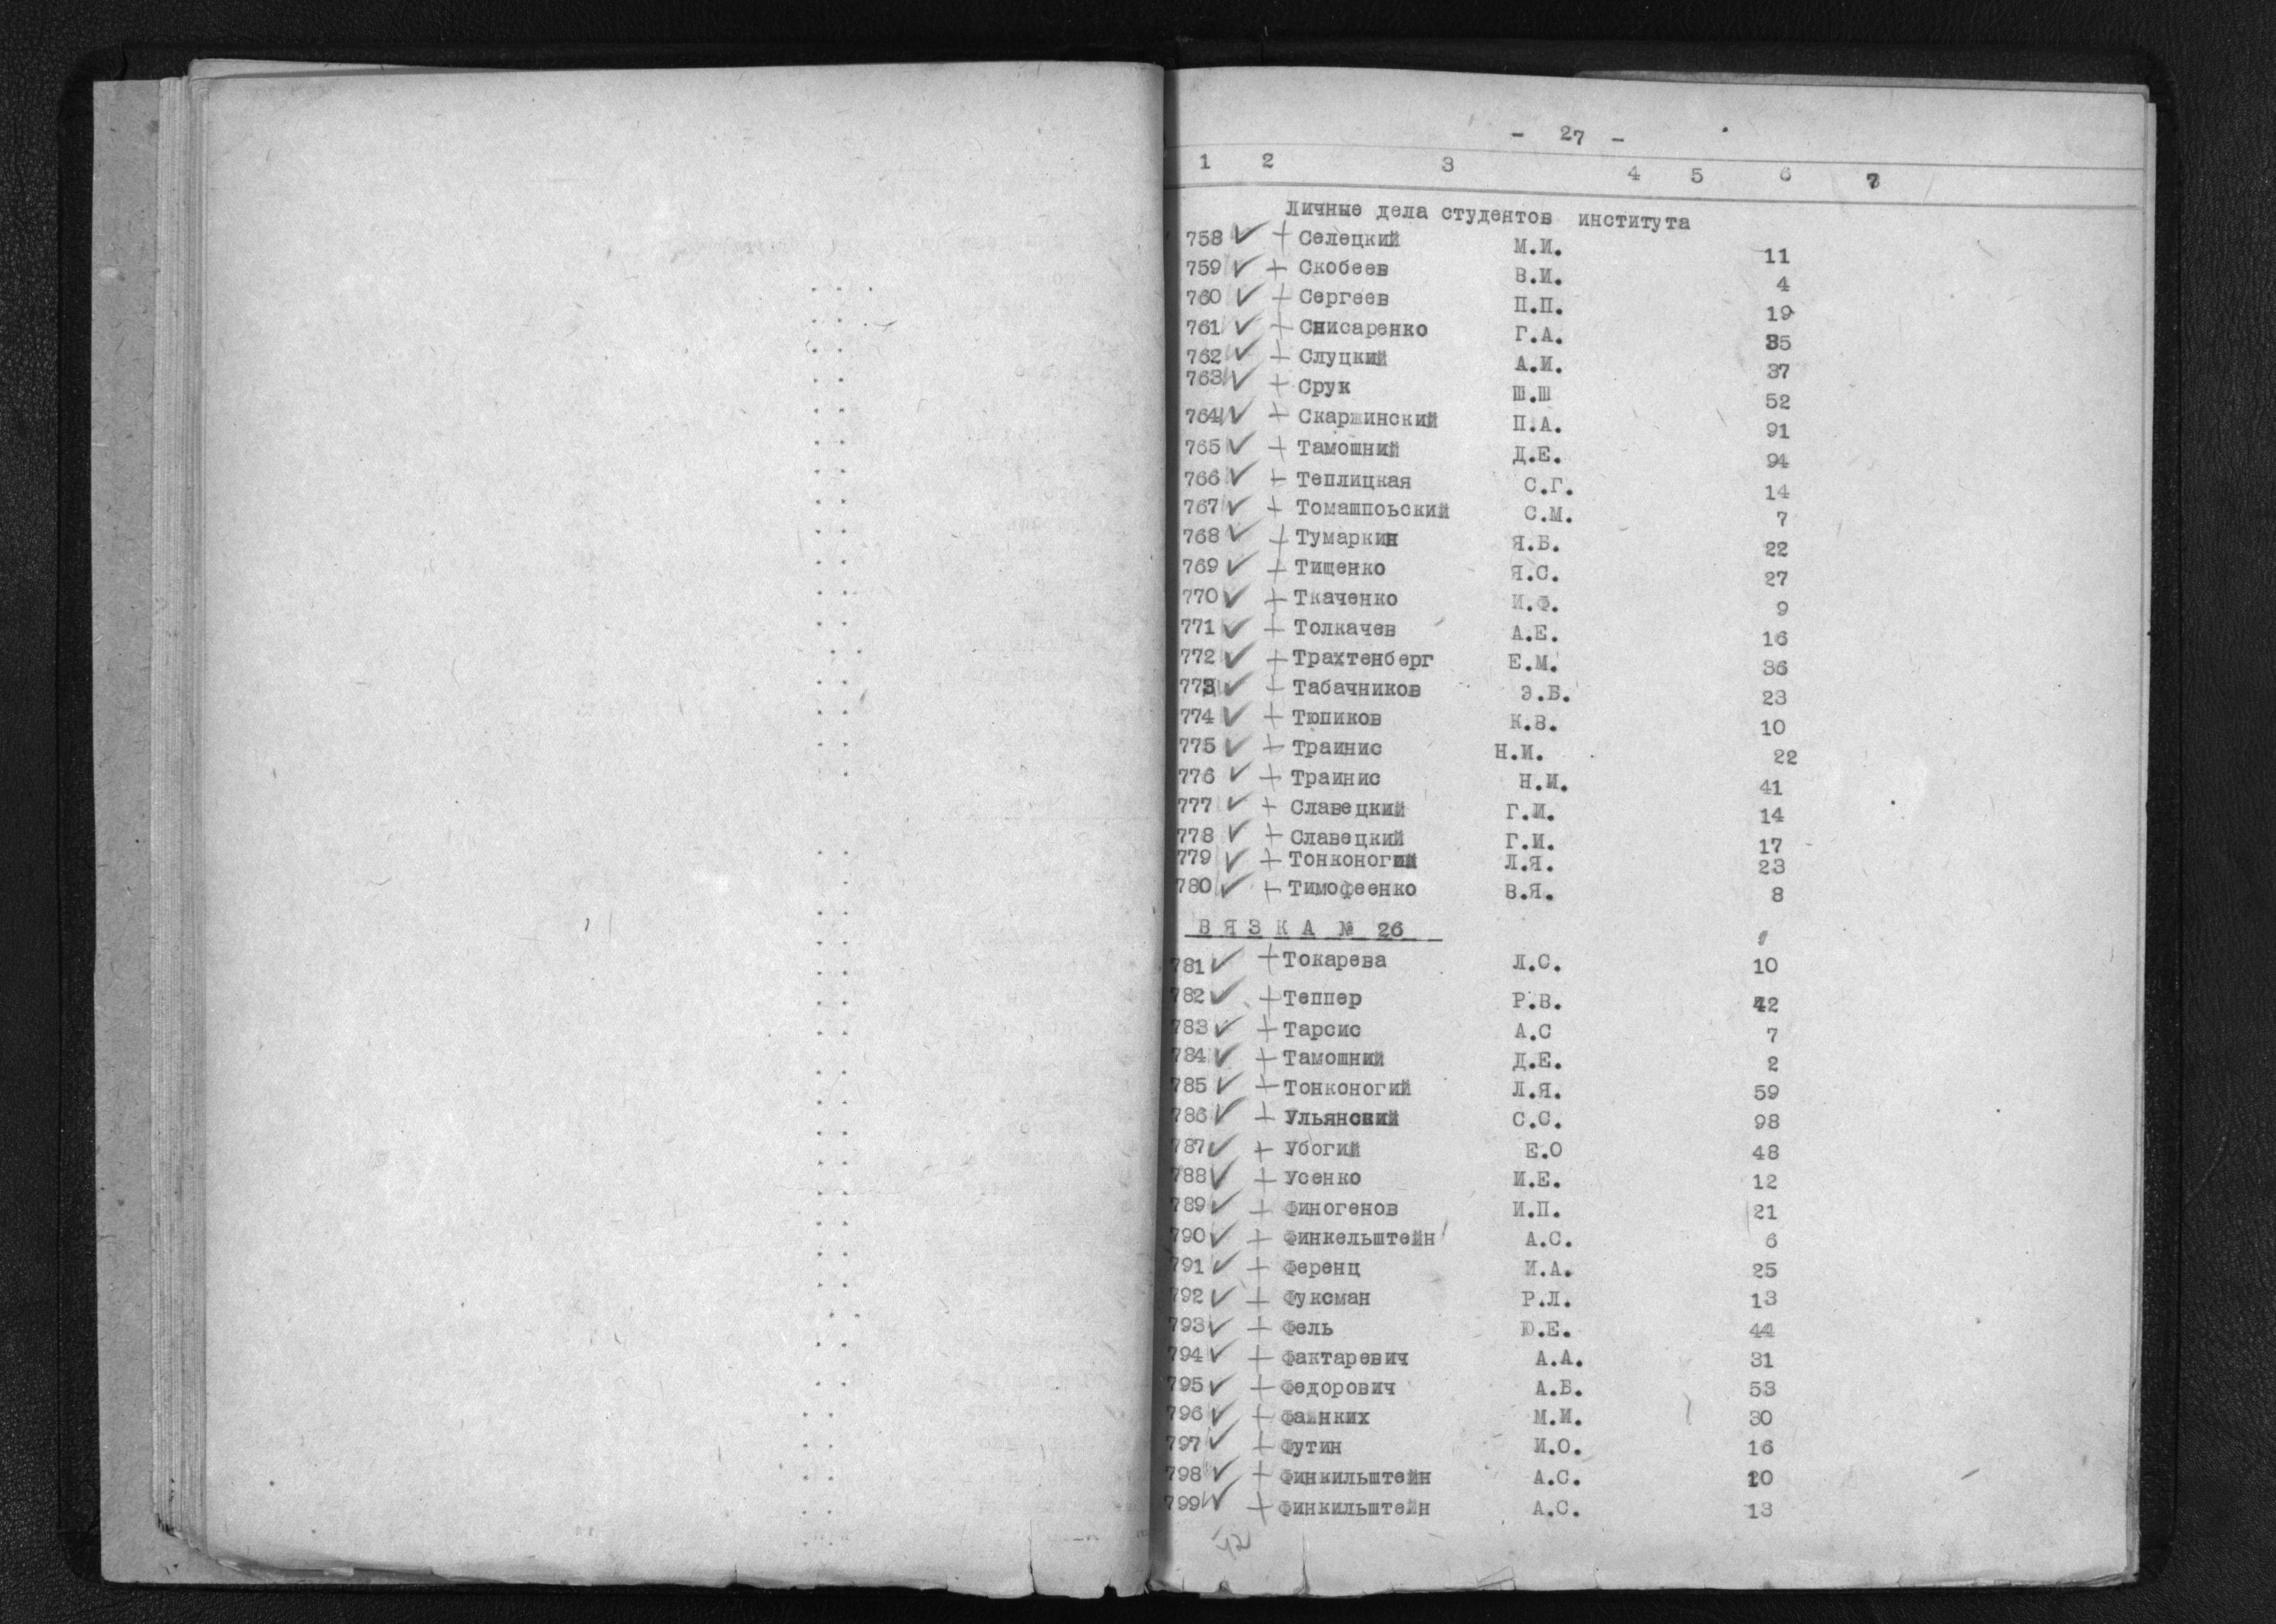 - 27 -
1 2 3 4 5 6 7
Личные дела студентов института
758 ✓ + Селецкий М.И. 11
759 ✓ + Скобеев В.И. 4
760 ✓ + Сергеев П.П. 19
761 ✓ + Снисаренко Г.А. 35
762 ✓ + Слуцкий А.И. 37
763 ✓ + Срук Ш.Ш 52
764 ✓ + Скаржинский П.А. 91
765 ✓ + Тамошний Д.Е. 94
766 ✓ + Теплицкая С.Г. 14
767 ✓ + Томашпоьский С.М. 7
768 ✓ + Тумаркин Я.Б. 22
769 ✓ + Тищенко Я.С. 27
770 ✓ + Ткаченко И.Ф. 9
771 ✓ + Толкачев А.Е. 16
772 ✓ + Трахтенберг Е.М. 36
773 ✓ + Табачников Э.Б. 23
774 ✓ + Тюпиков К.В. 10
775 ✓ + Траинис Н.И. 22
776 ✓ + Траинис Н.И. 41
777 ✓ + Славецкий Г.И. 14
778 ✓ + Славецкий Г.И. 17
779 ✓ + Тонконогий Л.Я. 23
780 ✓ + Тимофеенко В.Я. 8
ВЯЗКА № 26
781 ✓ + Токарева Л.С. 10
782 ✓ + Теппер Р.В. 42
783 ✓ + Тарсис А.С 7
784 ✓ + Тамошний Д.Е. 2
785 ✓ + Тонконогий Л.Я. 59
786 ✓ + Ульянский С.С. 98
787 ✓ + Убогий Е.О 48
788 ✓ + Усенко И.Е. 12
789 ✓ + Финогенов И.П. 21
790 ✓ + Финкельштейн А.С. 6
791 ✓ + Ференц И.А. 25
792 ✓ + Фуксман Р.Л. 13
793 ✓ + Фель Ю.Е. 44
794 ✓ + Фактаревич А.А. 31
795 ✓ + Федорович А.Б. 53
796 ✓ + Файнких М.И. 30
797 ✓ + Футин И.О. 16
798 ✓ + Финкильштейн А.С. 10
799 ✓ + Финкильштейн А.С. 13